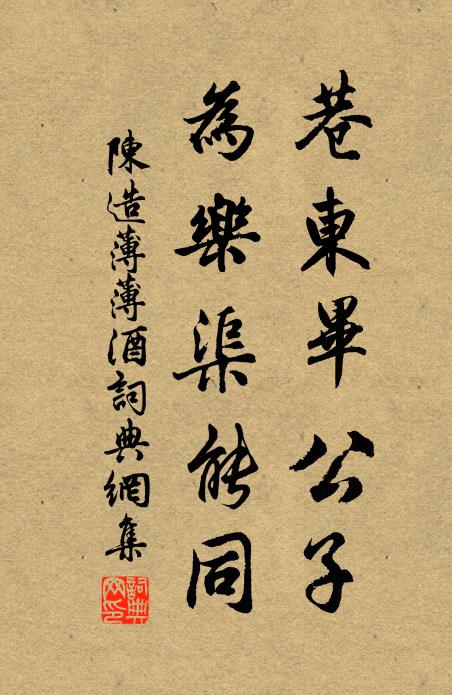 巷東畢公子
為樂渠能同
陳造薄薄酒詞典網集
詞典網印